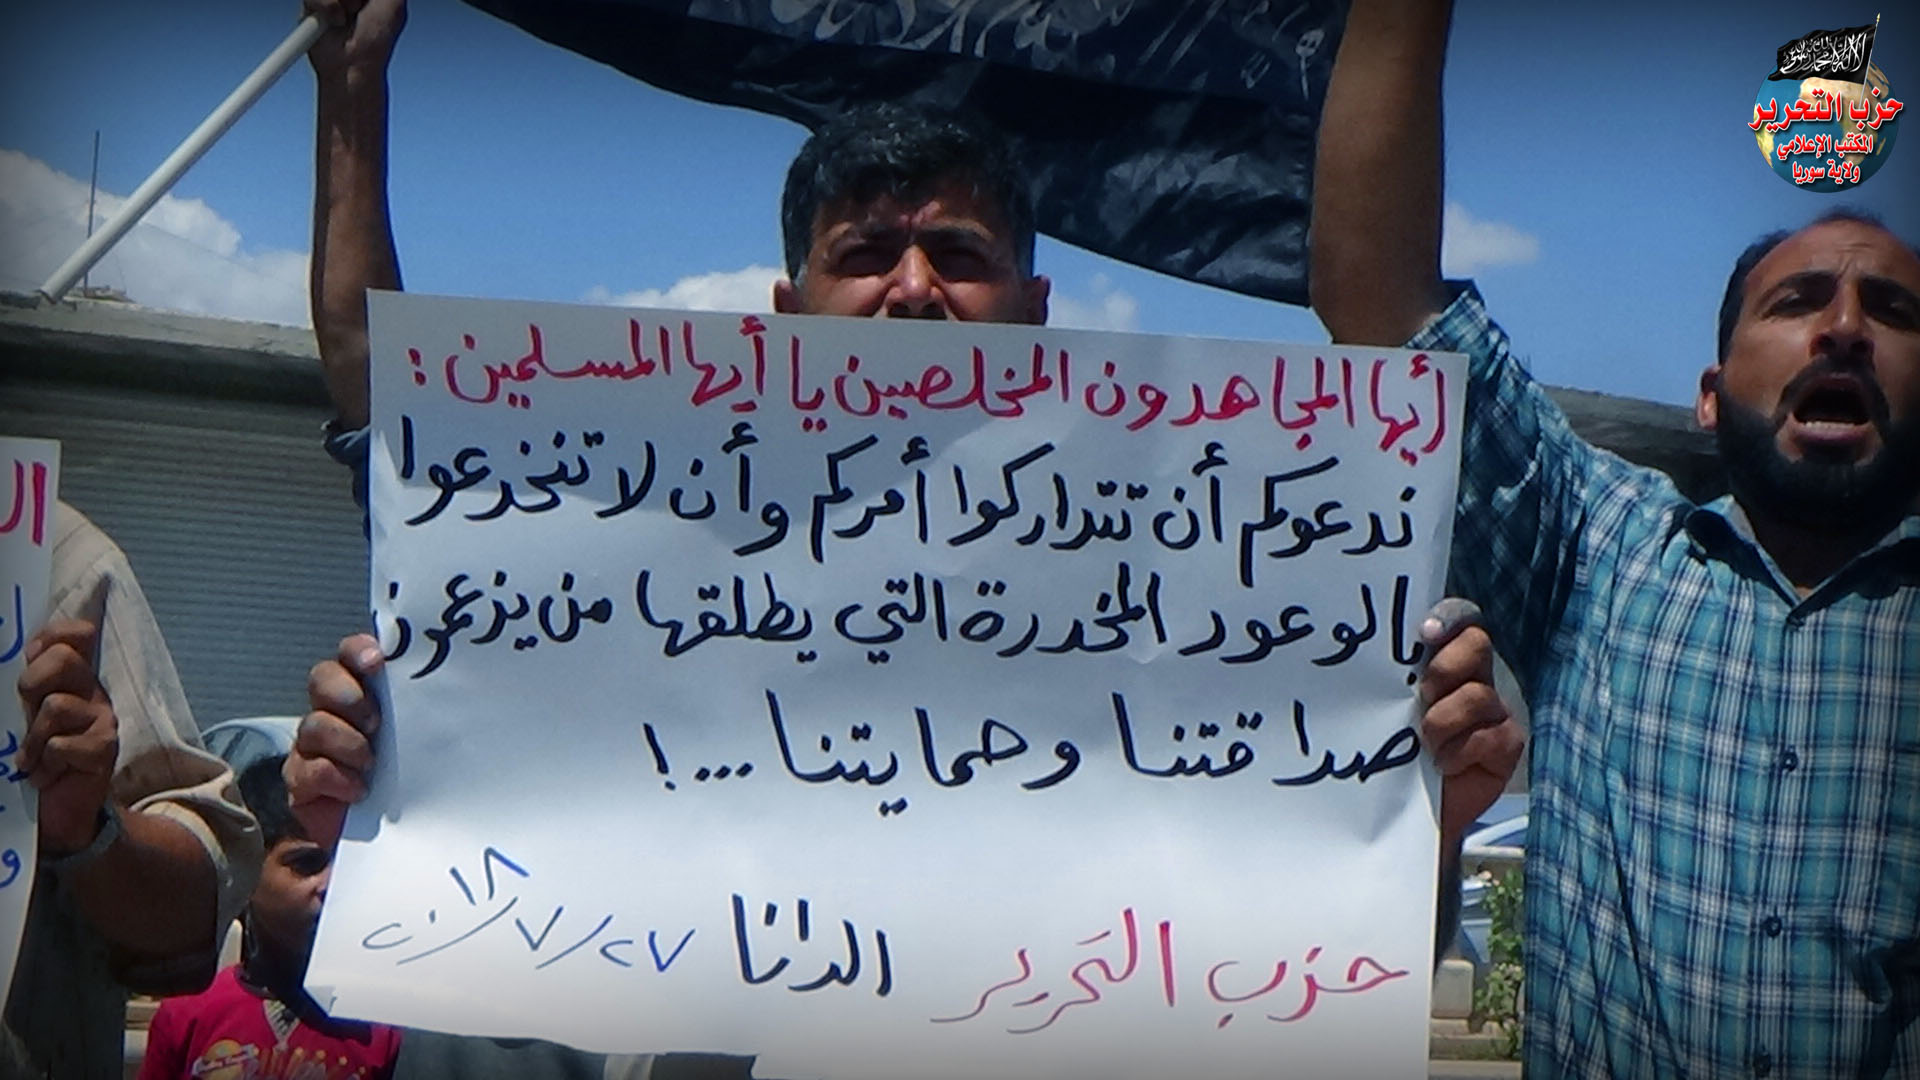 حزب التحرير
المكتب الإعلامي
ولاية سوريا
أيها المجاهدون المخلصين يا أيها المسلمين :
ندعوكم أن تتداركوا أمركم وأن لا تنخدعوا
بالوعود المخدرة التي يطلقها من يزعمون
صداقتنا وحمايتنا ...!
حزب التحرير الدانا ٢٧/٧/٢٠١٨